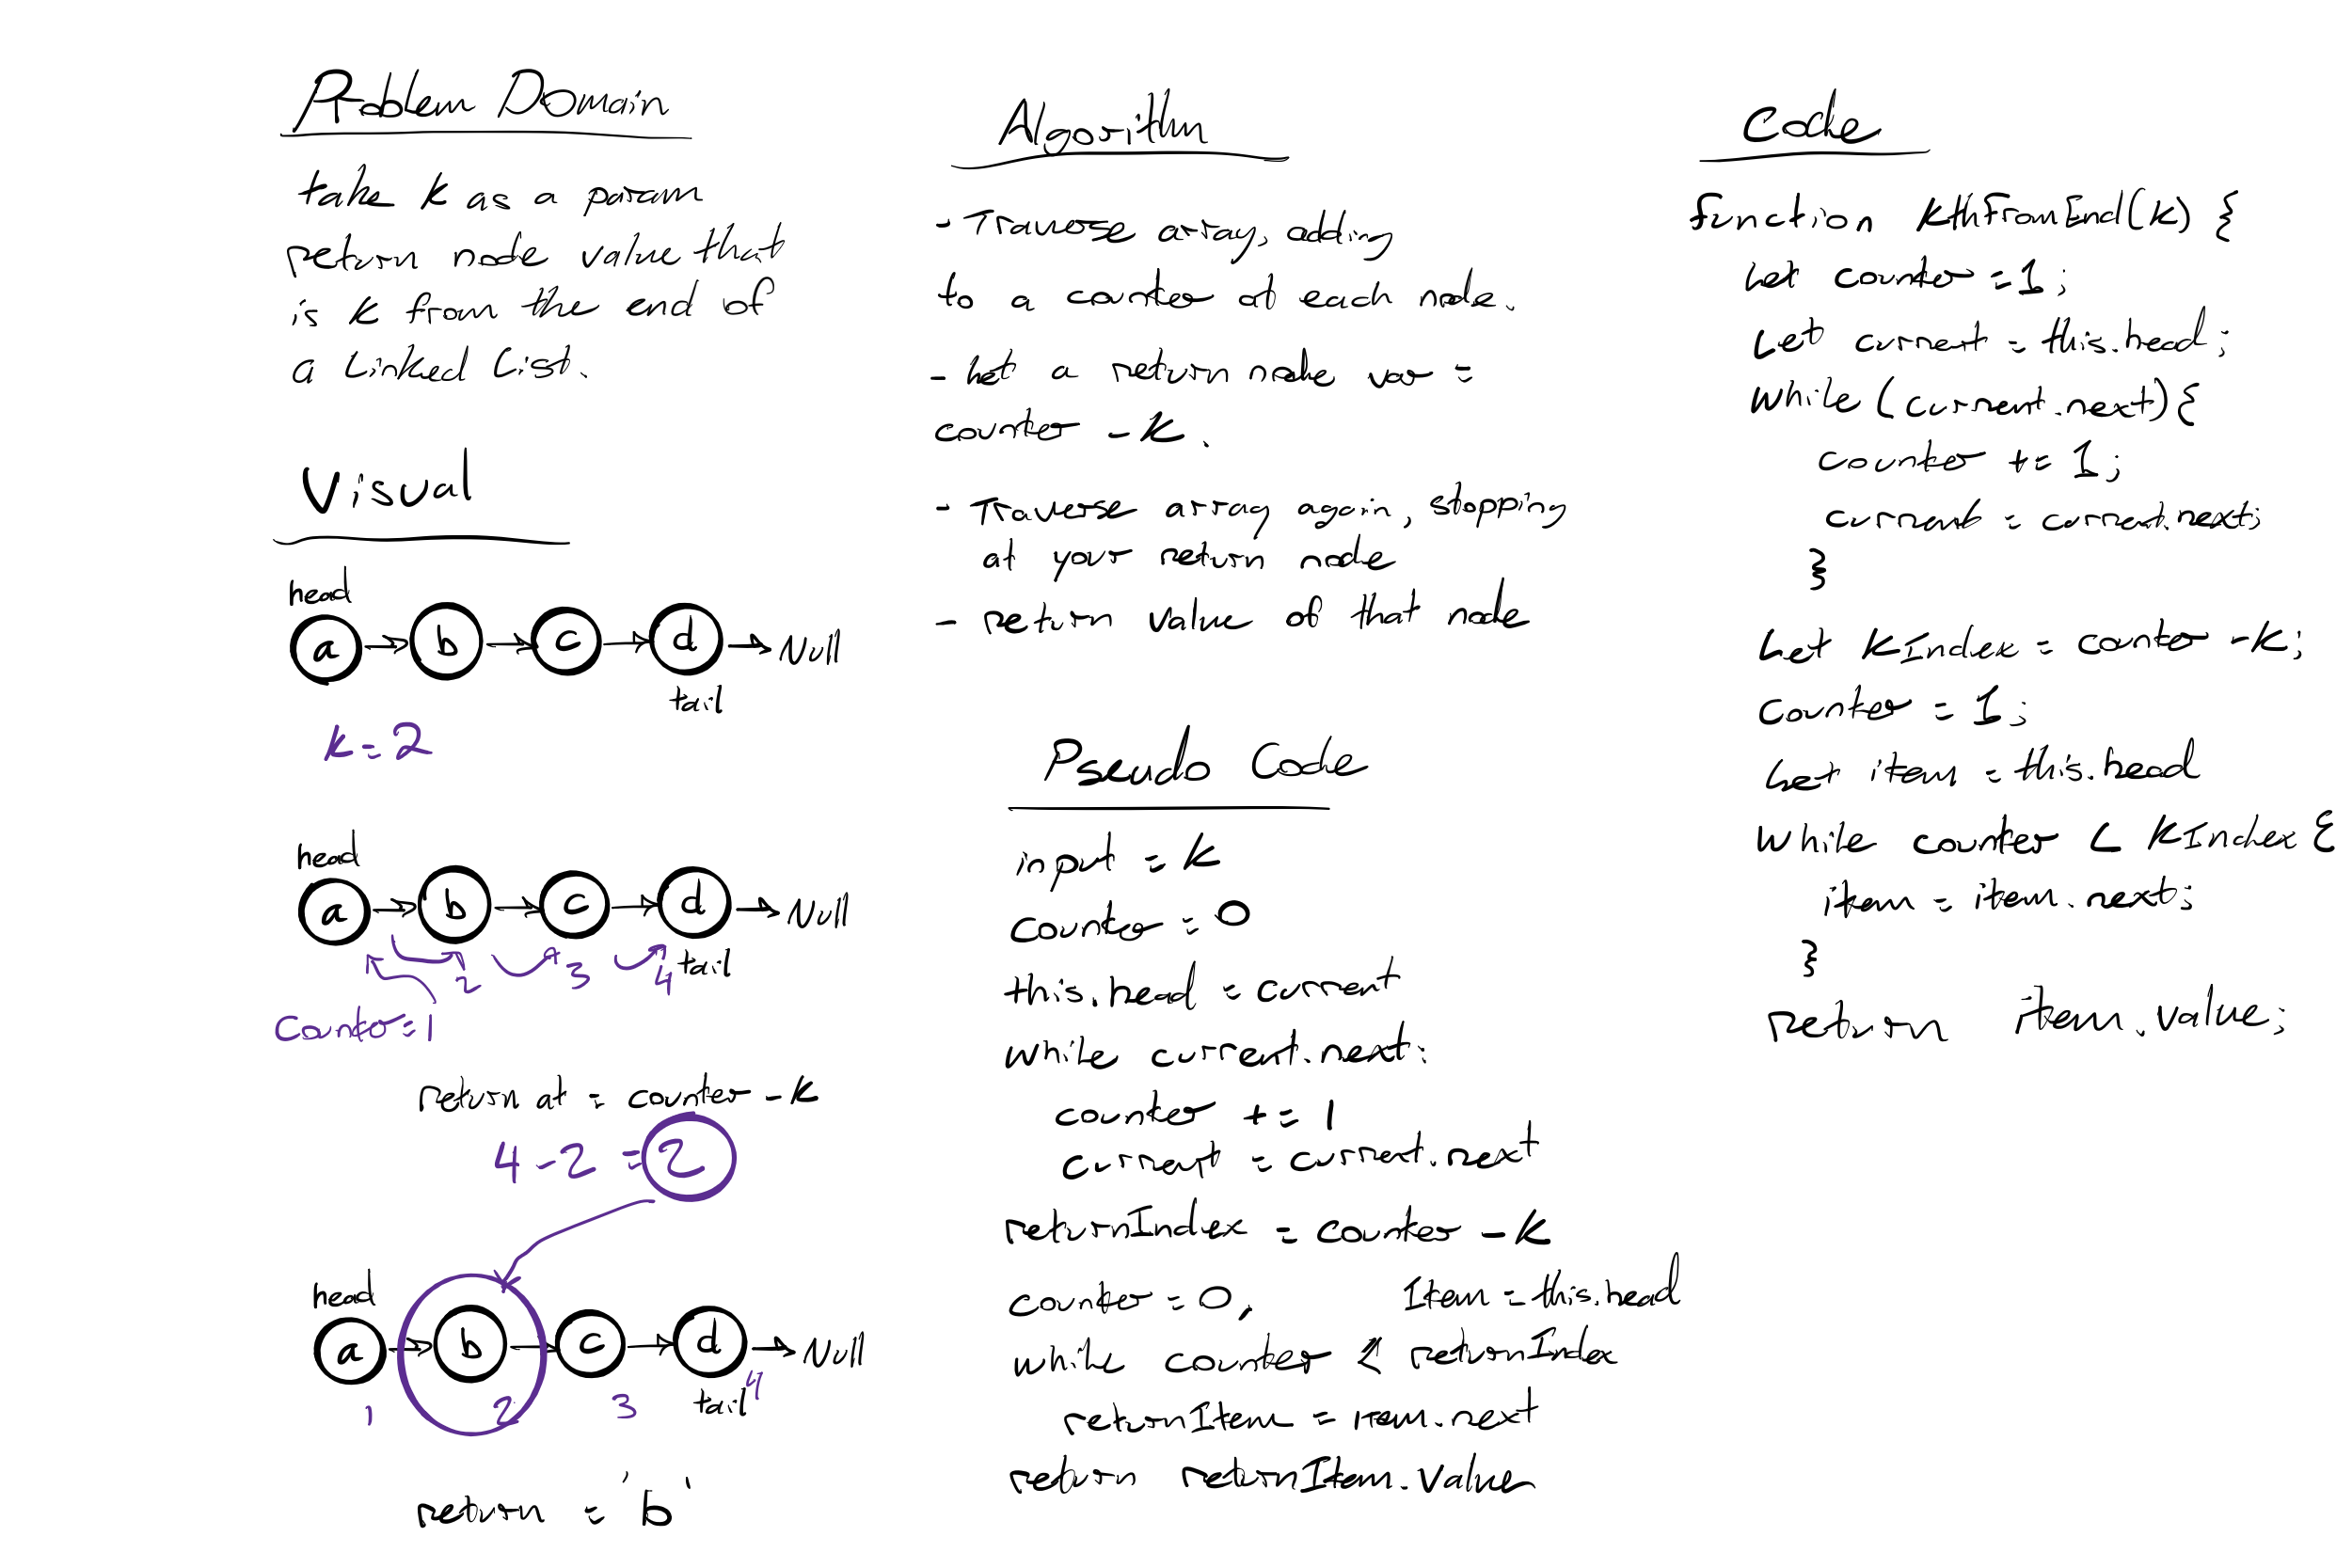 Problem Domain
take k as a param
return node value that
is k from the end of
a Linked List.
Visual
head
a → b → c → d → Null
tail
k = 2
head
a → b → c → d → Null
2 3 4 tail
Counter = 1
return at = counter - k
4 - 2 = 2
head
a → b → c → d → Null
1 2 3 tail 4
return = 'b'
Algorithm
- Traverse array, adding
to a counter at each node.
- Let a return node var =
counter - k.
- Traverse array again, stopping
at your return node
- return value of that node
Pseudo Code
input = k
counter = 0
this.head = current
while current.next:
counter += 1
current = current.next
returnIndex = counter - k
counter = 0, Item = this.head
while counter < returnIndex
returnItem = item.next
return returnItem.value
Code
function kthFromEnd(k) {
Let counter = 1;
Let current = this.head;
while (current.next) {
counter += 1;
current = current.next;
}
Let kIndex = counter - k;
Counter = 1;
Let item = this.head
While counter < kIndex {
item = item.next;
}
return item.value;